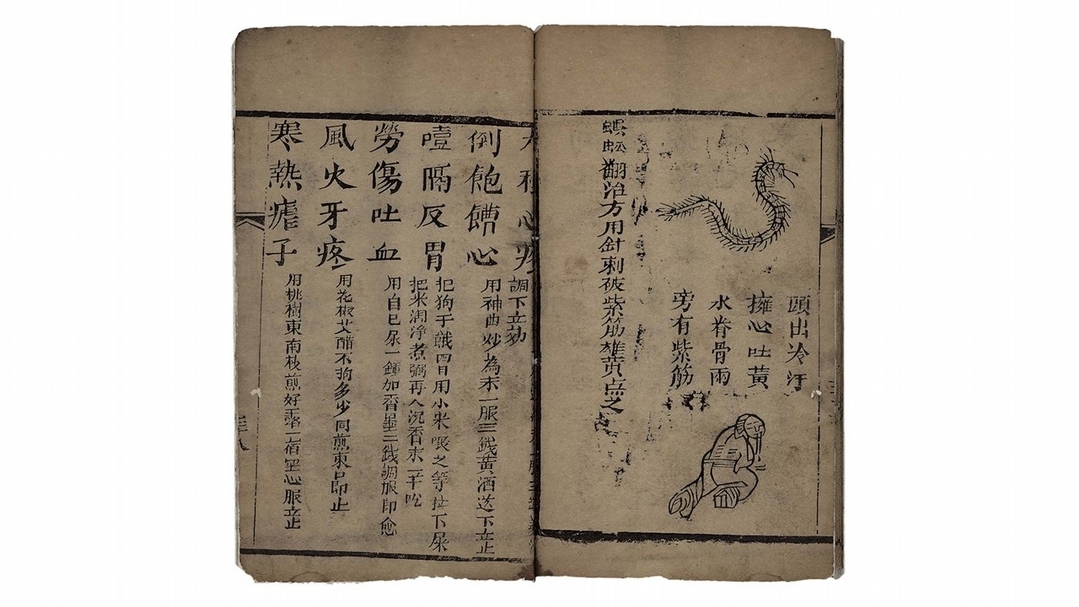 頭出冷汗
擁心吐黃
水脊骨雨
旁有紫筋
蜈蚣翻治方用針刺破紫筋雄黃点之
種心疼
調下立効
倒飽饋心
用神曲炒為末一服三錢黃酒送下立止
噎膈反胃
狗于餓四日用小米喂之等拉下屎
把米淘净煮粥再入沉香末一辛吃
勞傷吐血
用自己尿一鍾加香墨三錢調服即愈
風火牙疼
用花椒艾醋不拘多少同煎東口即止
寒熱瘧子
用桃樹東南枝煎好露一宿空心服立止